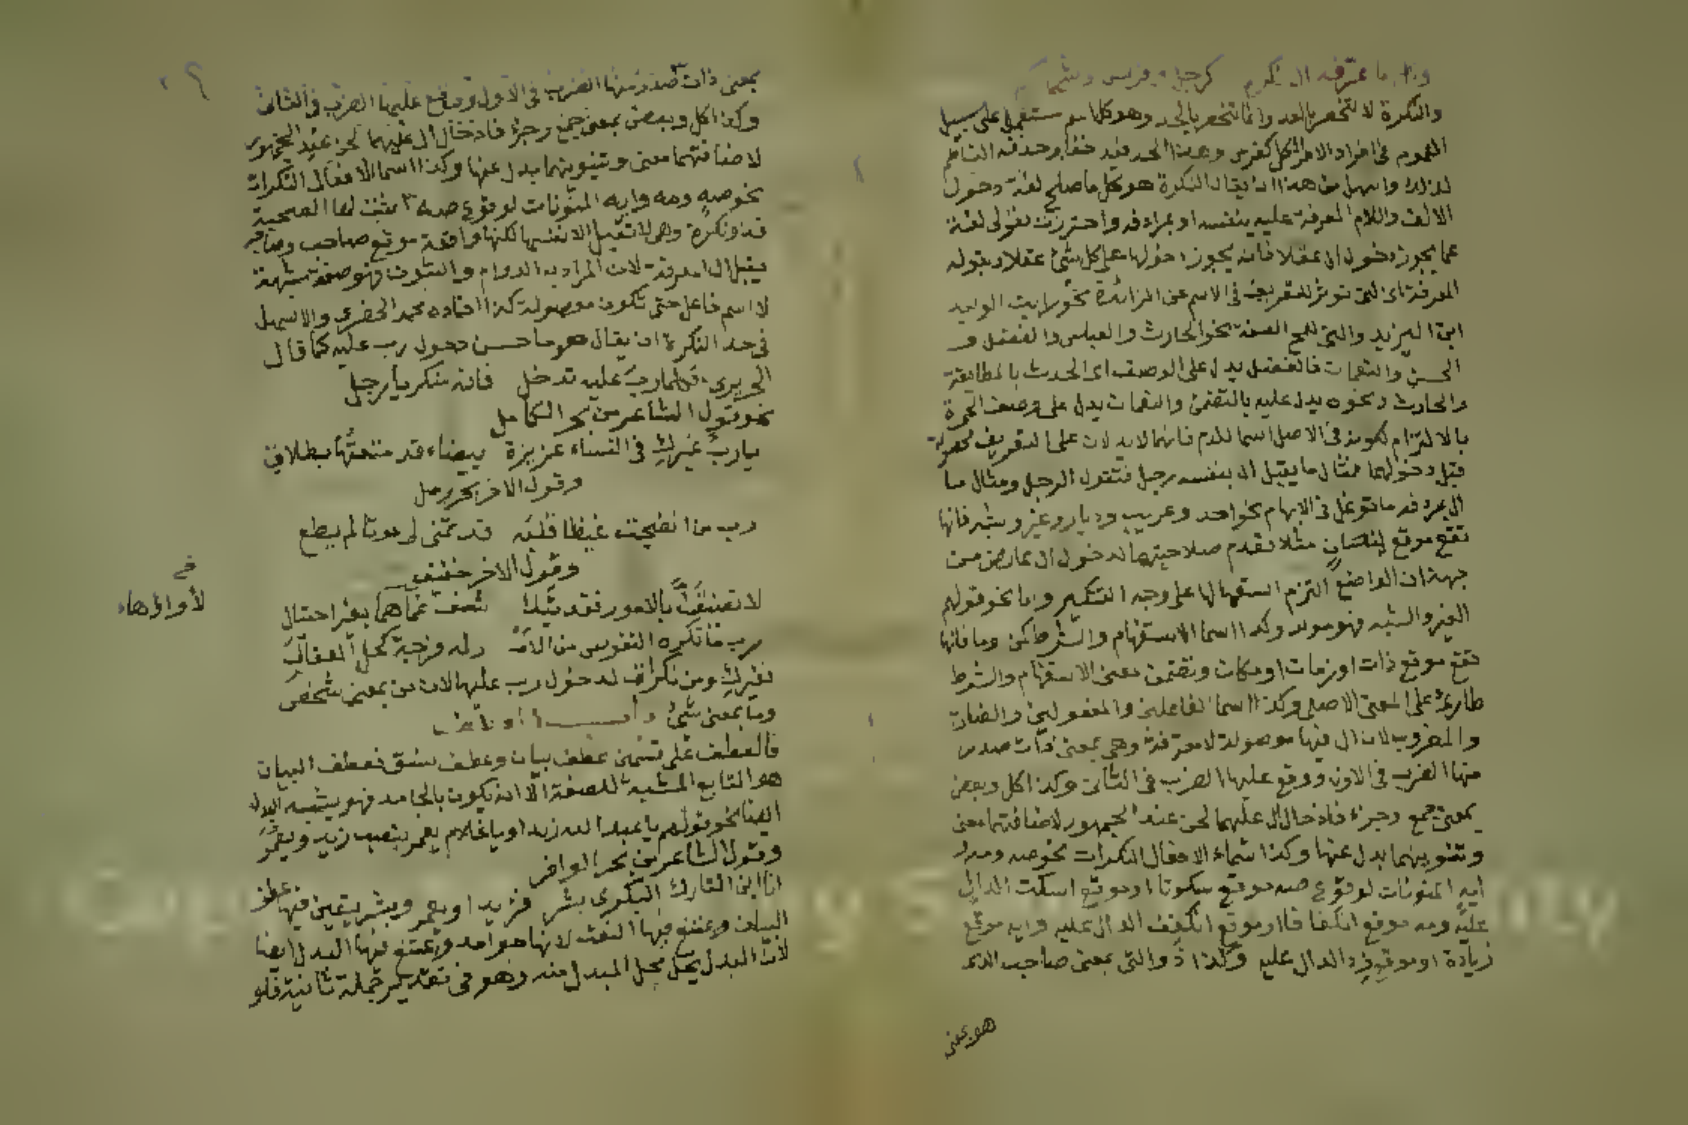 كرجل وفرس
والنكرة لا تنحصر بالعد وانما تنحصر بالحد وهو كل اسم مستعمل على سبيل
العموم في افراد الامر الكلي كفرس وهذا الحد فيه خفا وحد فيه الناظم
لذلك واسهل من هذا ان يقال النكرة هو كل ما صلح لغة دخول
الالف واللام المعرفة عليه بنفسه او بمرادفه واحترزت بقولي لغة
عما يجوز دخول ال عقلا فانه يجوز دخولها على كل شيء عقلا وبقوله
المعرفة اي التي توثر التعريف في الاسم عن الزائدة نحو رايت الوليد
ابن اليزيد والتي للمح الصفة نحو الحارث والعباس والفضل و
الحسن والنعمان فالفضل يدل على الوصف اي الحدث بالمطابقة
والحارث ونحوه يدل عليه بالتضمن والنعمان يدل على وصف الحمرة
بالالتزام لكونه في الاصل اسما للدم فانهما لا يدلان على التعريف لحصوله
قبل دخولهما مثال ما يقبل ال بنفسه رجل فتقول الرجل ومثال ما
ال بمرادفه ما توغل في الابهام نحو احد وعريب وديار وغير وشبه فانها
تقع موقع انسان مثلا لعدم صلاحيتها لدخول ال عارض من
جهة ان الواضع التزم استعمالها على وجه التنكير واما نحو قولهم
الغير والشبه فهو مولد وكذا اسما الاستفهام والشرط كمن وما فانها
تقع موقع ذات او زمان او مكان وتضمن معنى الاستفهام والشرط
طارئ على المعنى الاصلي وكذا اسما الفاعلين والمفعولين والضارب
والمضروب لان ال فيها موصولة لا معرفة وهي بمعنى ذات صدر
منها الضرب في الاول ووقع عليها الضرب في الثاني وكذا كل وبعض
بمعنى جمع وجزء فادخال ال عليهما لحن عند الجمهور لاضافتهما معنى
وتنوينهما بدل عنها وكذا اسماء الافعال النكرات نحو صه ومه و
ايه المنونات لوقوع صه موقع سكوتا او موقع اسكت الدال
عليه ومه موقع انكفافا او موقع انكفف الدال عليه وايه موقع
زيادة او موقع زد الدال عليه وكذا ذو التي بمعنى صاحب الذي
هو بمعنى
بمعنى ذات صدر منها الضرب في الاول ووقع عليها الضرب في الثاني
وكذا كل وبعض بمعنى جمع وجزء فادخال ال عليهما لحن عند الجمهور
لاضافتهما معنى وتنوينهما بدل عنها وكذا اسما الافعال النكرات
نحو صه ومه وايه المنونات لوقوع صه
وهي لا تقبل ال بنفسها لكنها واقعة موقع صاحب وصاحب
يقبل ال المعرفة لان المراد به الدوام والثبوت فهو صفة مشبهة
لا اسم فاعل حتى تكون موصولة كذا افاده محمد الخضري والاسهل
في حد النكرة ان يقال هو ما حسن دخول رب عليه كما قال
الحريري فكلما رب عليه تدخل فانه منكر يا رجل
نحو قول الشاعر من بحر الكامل
يا رب غيرك في النساء عزيزة بيضاء قد متعتها بطلاق
وقول الاخر بحر رمل
رب من انضجت غيظا قلبه قد تمنى لي موتا لم يطع
وقول الاخر خفيف
لا تضيقن بالامور فقد تكشف غماهما بغير احتيال
لأواؤها
رب ما تكره النفوس من الامر له فرجة كحل العقال
فغيرك ومن نكرات لدخول رب عليها لان من بمعنى شخص
وما بمعنى شيئ
فالعطف على قسمين عطف بيان وعطف نسق فعطف البيان
هو التابع المشبه للصفة الا انه يكون بالجامد فهو يشبه البدل
ايضا نحو قولهم يا عبد الله زيدا ويا غلام يعمر بنصب زيد ويعمر
وقول الشاعر من بحر الوافر
انا ابن التارك البكري بشر فزيد او يعمر وبشر يتعين فيها عطف
البيان ويمتنع فيها النعت لانها جوامد ويمتنع فيها البدل ايضا
لان البدل يحل محل المبدل منه وهو في تقدير جملة ثانية فلو